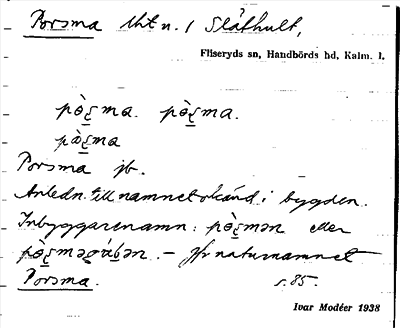 Porsma tht n. / Slåthult,
Fliseryds sn, Handbörds hd, Kalm. l.
pòʂma. pòʂma.
pàʂma
Porsma jb.
Anledn. till namnet okänd i bygden.
Inbyggarenamn: pòʂmən eller
— Jfr naturnamnet
Porsma. s. 85.
Ivar Modéer 1938